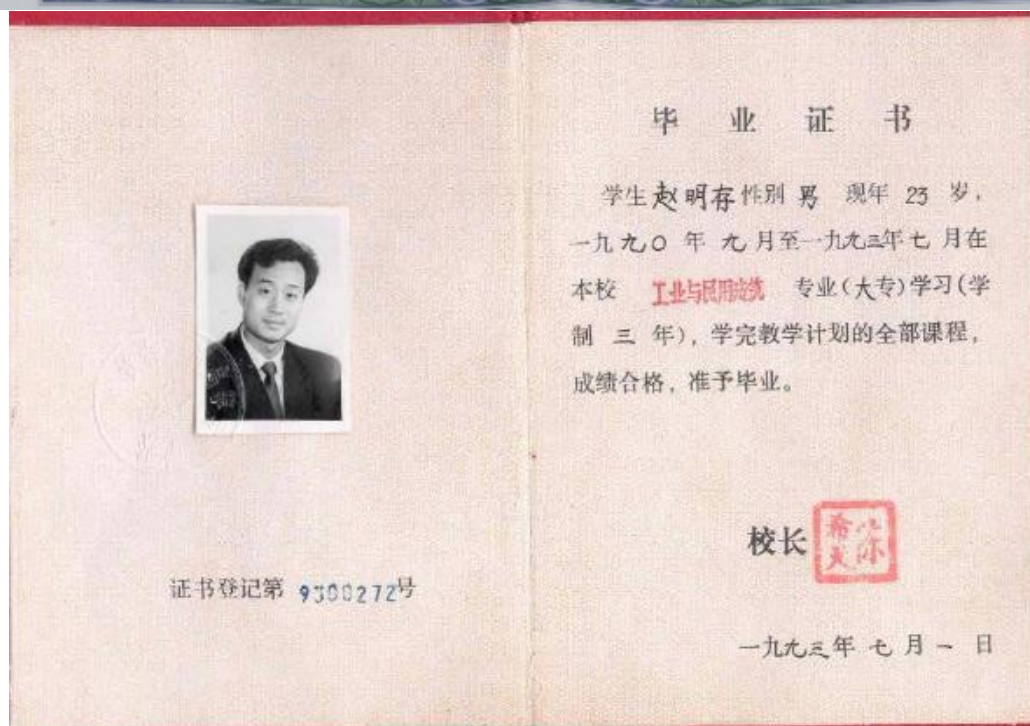 证书登记第 9300272号
毕业证书
学生赵明存性别 男 现年 23 岁，
一九九〇 年 九 月至一九九三年七 月在
本校 工业与民用建筑 专业（大专）学习（学
制 三 年），学完教学计划的全部课程，
成绩合格，准予毕业。
校长
一九九三年 七 月 一 日